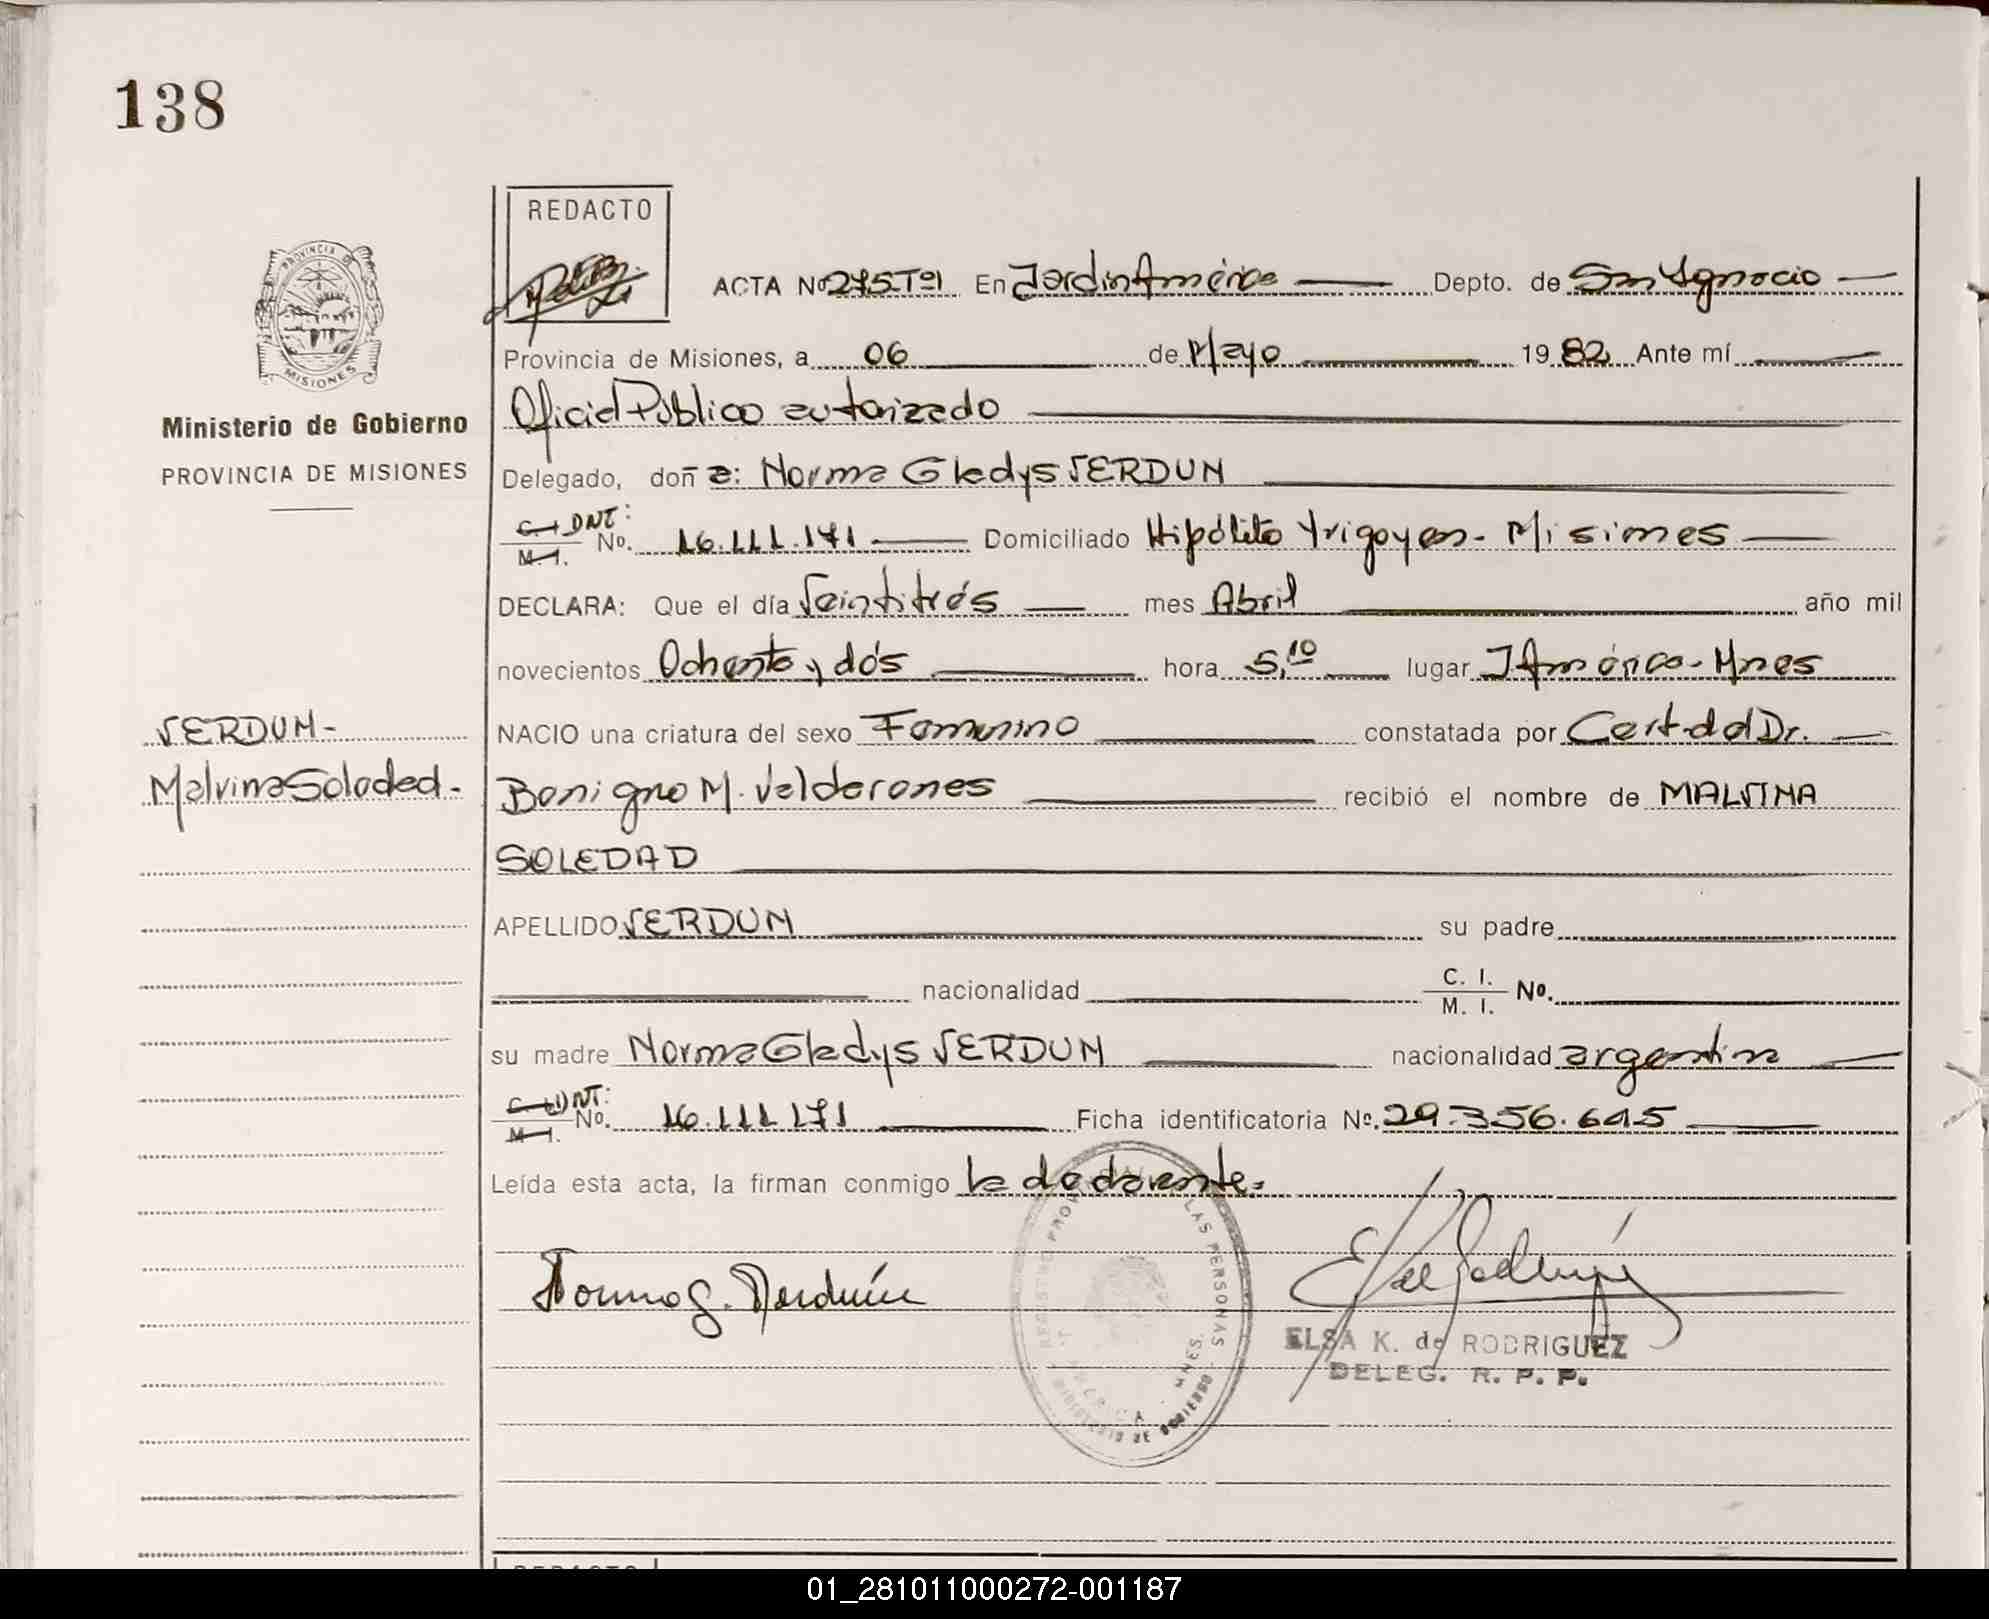 138
REDACTO
ACTA Nº 275-Tº1 En Jardín América Depto. de San Ignacio
PROVINCIA DE MISIONES
Provincia de Misiones, a 06 de Mayo 1982 Ante mí
Oficial Público autorizado
Ministerio de Gobierno
PROVINCIA DE MISIONES
Delegado, doña: Norma Gladys VERDUN
C.I. DNI: M.I. No. 16.111.171 Domiciliado Hipólito Yrigoyen - Misiones
DECLARA: Que el día Veintitrés mes Abril año mil
novecientos Ochenta y dós hora 5,10 lugar J América - Mnes
VERDUN-
NACIO una criatura del sexo Femenino constatada por Cert. del Dr.
Malvina Soledad.-
Benigno M. Valderones recibió el nombre de MALVINA
SOLEDAD
APELLIDO VERDUN su padre
nacionalidad C. I. M. I. Nº.
su madre Norma Gladys VERDUN nacionalidad argentina
C.I. DNI: M.I. No. 16.111.171 Ficha identificatoria Nº. 29.356.645
Leída esta acta, la firman conmigo la declarante.-
REGISTRO PROV. LAS PERSONAS
MINISTERIO DE GOBIERNO - MNES.
Norma G. Verdún
ELSA K. de RODRIGUEZ
DELEG. R. P. P.
REDACTO
01_281011000272-001187